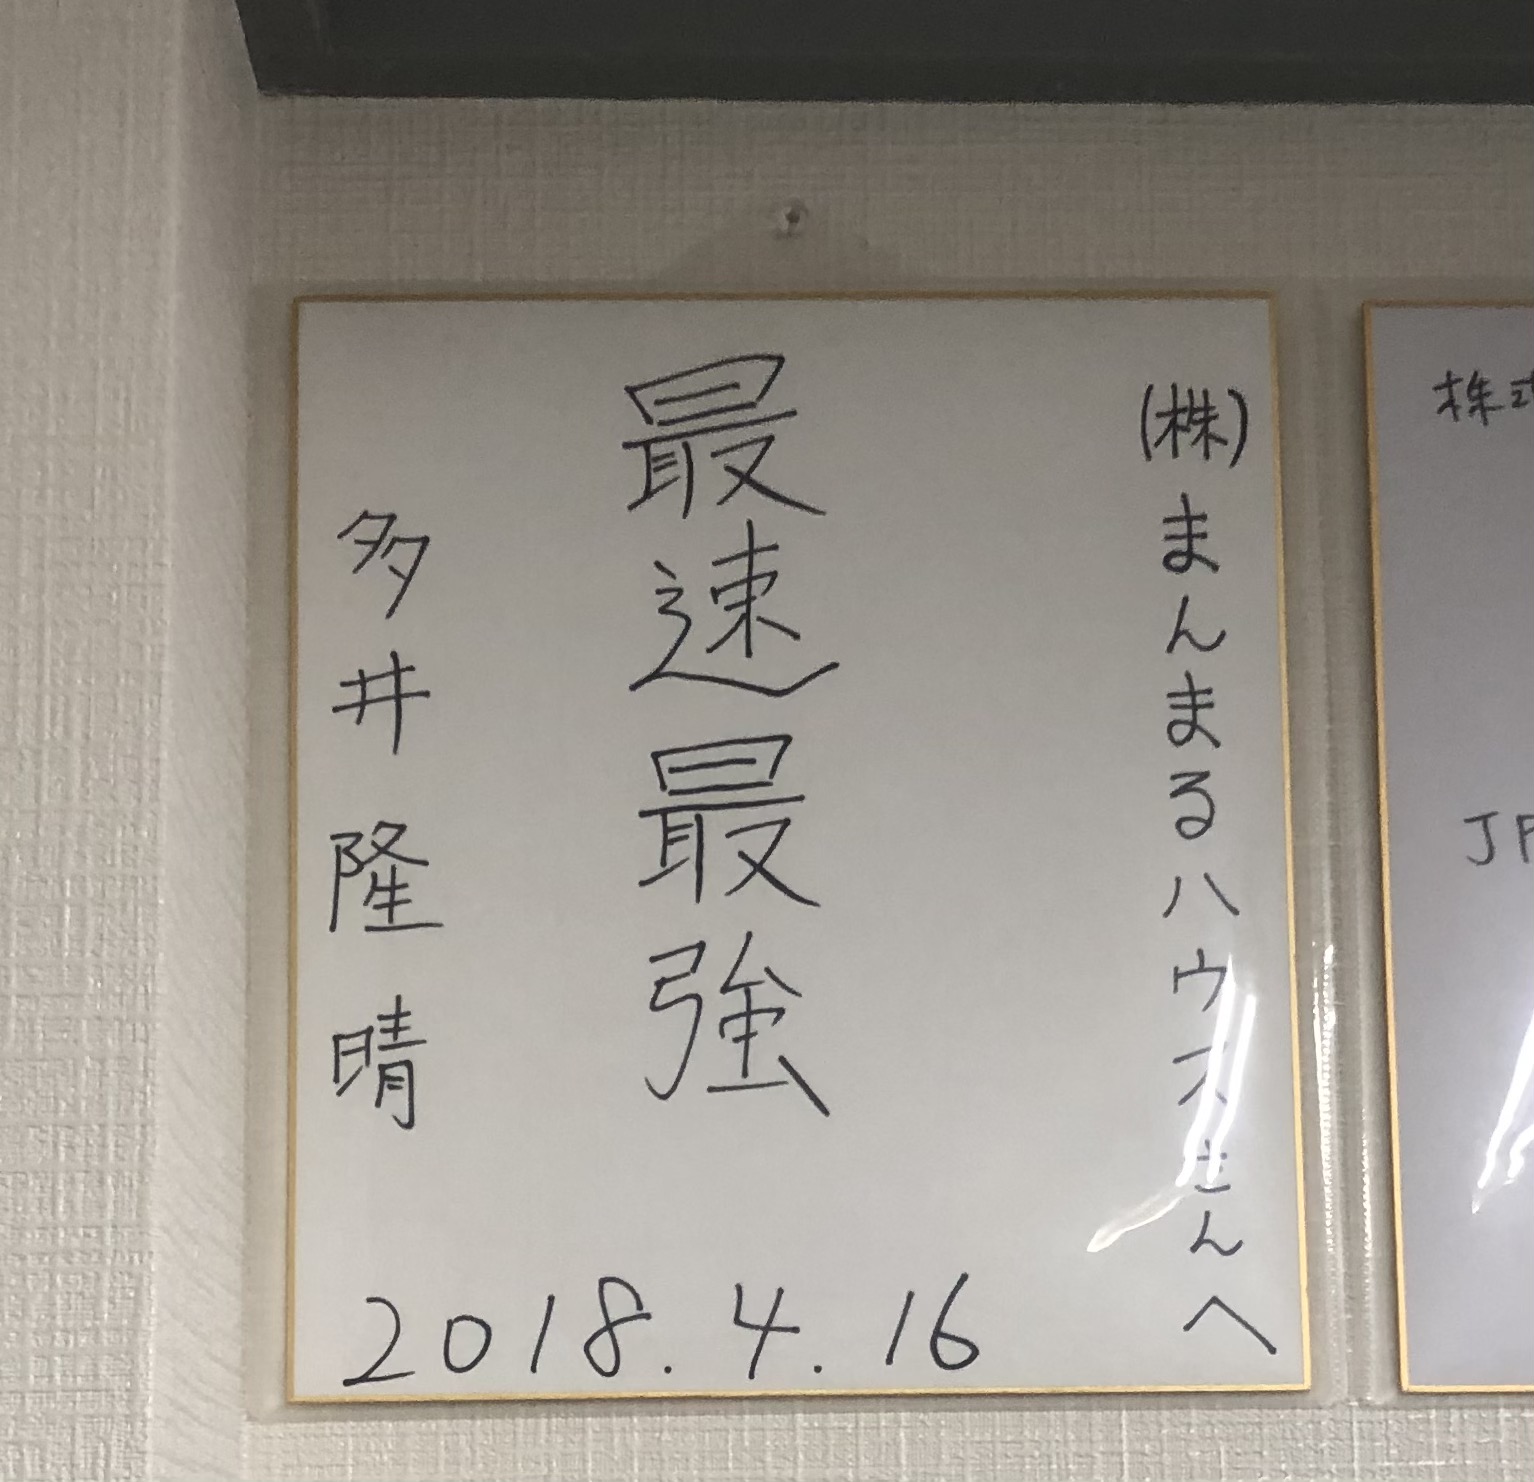 (株)まんまるハウスさんへ
最速最強
多井隆晴
2018.4.16
株式